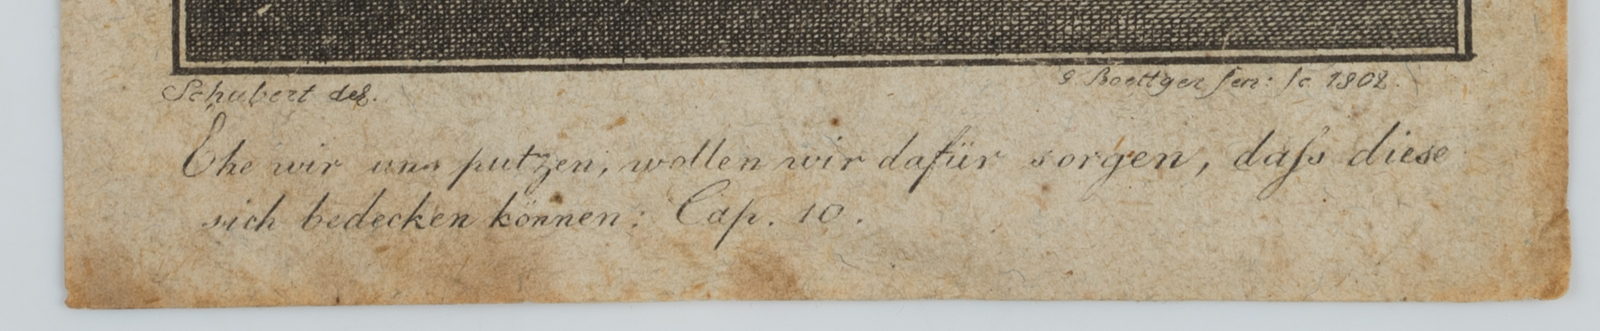 Schubert del.
G Boettger sen: sc 1802.
Ehe wir uns putzen, wollen wir dafür sorgen, daſs diese
sich bedecken können: Cap. 10.